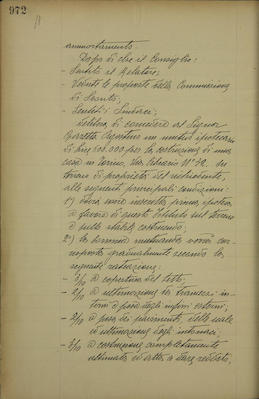 972
ammortamento.
Dopo di che il Consiglio:
- Sentito il Relatore;
- Vedute le proposte della Commissione
di Sconto;
- Sentiti i Sindaci;
Delibera di concedere al Signor
un mutuo ipotecario
di Lire 100.000 per la costruzione di una
casa in Torino, Via Cibrario N° 32, su
terreno di proprietà del richiedente,
alle seguenti principali condizioni:
1°) dovrà venir inscritta prima ipoteca
a favore di questo Istituto sul terreno
e sullo stabile costruendo;
2°) la somma mutuanda verrà cor-
risposta gradualmente secondo le
seguenti rateazioni:
- 3/10 a copertura del tetto;
- 2/10 a ultimazione dei tramezzi in-
terni e posa degli infissi esterni;
- 2/10 a posa dei pavimenti, delle scale
e ultimazione degli intonaci;
- 3/10 a costruzione completamente
ultimata ed atta a dare reddito.